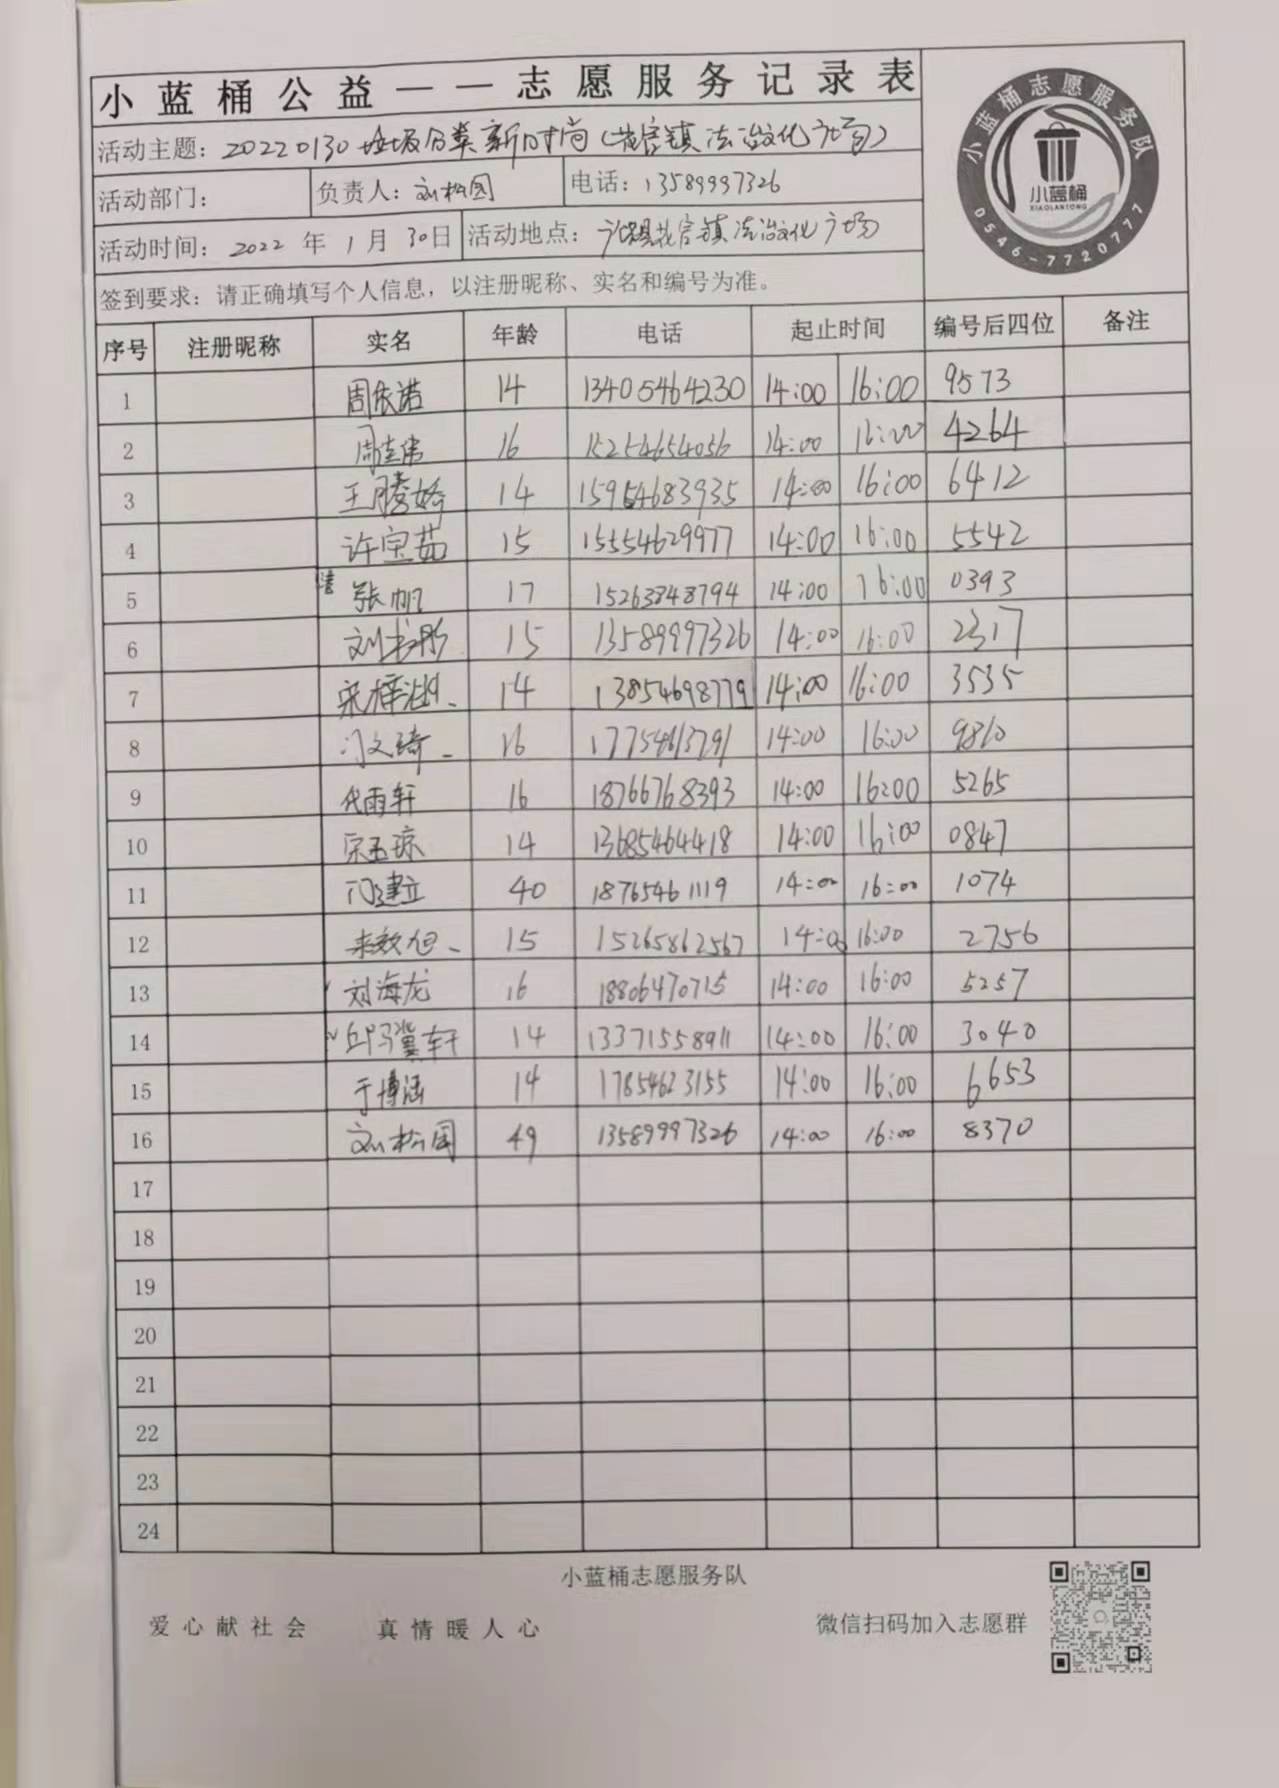 小蓝桶公益——志愿服务记录表
小蓝桶志愿服务队
小蓝桶
XIAOLANTONG
0546-7720777
活动主题：20220130垃圾分类新时尚（花官镇法治文化广场）
活动部门： 负责人：刘松园 电话：13589997326
活动时间：2022年1月30日 活动地点：广饶县花官镇法治文化广场
签到要求：请正确填写个人信息，以注册昵称、实名和编号为准。
序号 注册昵称 实名 年龄 电话 起止时间 编号后四位 备注
1 周依诺 14 13405464230 14:00 16:00 9573
2 周佳伟 16 15254654056 14:00 16:00 4264
3 王腾娇 14 15954683935 14:00 16:00 6412
4 许宝茹 15 15554629977 14:00 16:00 5542
5 张帆 17 15263848794 14:00 16:00 0393
6 刘书彤 15 13589997326 14:00 16:00 2317
7 宋梓 14 13854698779 14:00 16:00 3535
8 门文琦 16 17754613791 14:00 16:00 9810
9 代雨轩 16 18766768393 14:00 16:00 5265
10 宋玉琼 14 13685464418 14:00 16:00 0847
11 门建立 40 18765461119 14:00 16:00 1074
12 来效旭 15 15265862567 14:00 16:00 2756
13 刘海龙 16 18806470715 14:00 16:00 5257
14 邱冀轩 14 13371558911 14:00 16:00 3040
15 于博涵 14 17854623155 14:00 16:00 6653
16 刘松园 49 13589997326 14:00 16:00 8370
17
18
19
20
21
22
23
24
小蓝桶志愿服务队
爱心献社会 真情暖人心 微信扫码加入志愿群